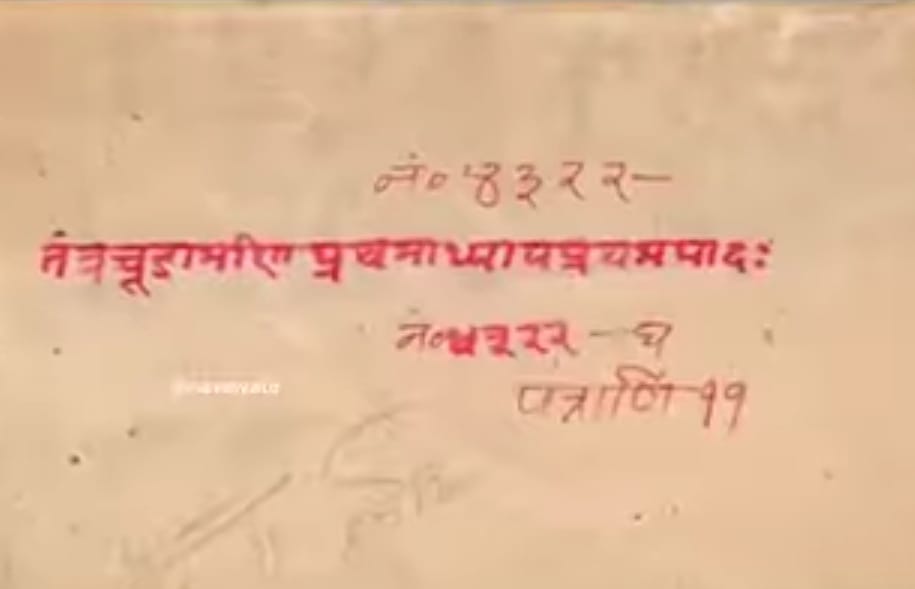 नं० ४३२२ –
तंत्रचूडामणि प्रथमाध्यायप्रथमपादः
नं० ४३२२ – घ
पत्राणि ११